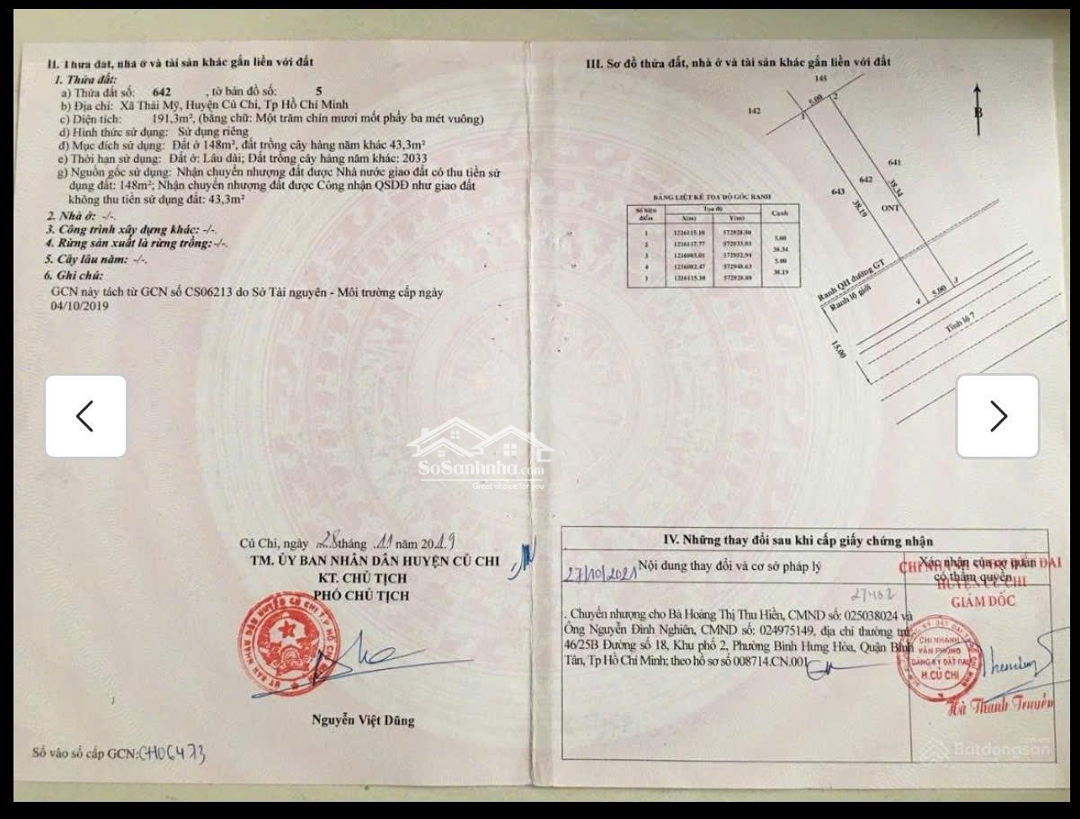 II. Thửa đất, nhà ở và tài sản khác gắn liền với đất
1. Thửa đất:
a) Thửa đất số: 642 , tờ bản đồ số: 5
b) Địa chỉ: Xã Thái Mỹ, Huyện Củ Chi, Tp Hồ Chí Minh
c) Diện tích: 191,3m², (bằng chữ: Một trăm chín mươi mốt phẩy ba mét vuông)
d) Hình thức sử dụng: Sử dụng riêng
đ) Mục đích sử dụng: Đất ở 148m², đất trồng cây hàng năm khác 43,3m²
e) Thời hạn sử dụng: Đất ở: Lâu dài; Đất trồng cây hàng năm khác: 2033
g) Nguồn gốc sử dụng: Nhận chuyển nhượng đất được Nhà nước giao đất có thu tiền sử
dụng đất: 148m²; Nhận chuyển nhượng đất được Công nhận QSDĐ như giao đất
không thu tiền sử dụng đất: 43,3m²
2. Nhà ở: -/-.
3. Công trình xây dựng khác: -/-.
4. Rừng sản xuất là rừng trồng: -/-.
5. Cây lâu năm: -/-.
6. Ghi chú:
GCN này tách từ GCN số CS06213 do Sở Tài nguyên - Môi trường cấp ngày
04/10/2019
Củ Chi, ngày 28 tháng 11 năm 2019
TM. ỦY BAN NHÂN DÂN HUYỆN CỦ CHI
KT. CHỦ TỊCH
PHÓ CHỦ TỊCH
Nguyễn Việt Dũng
Số vào sổ cấp GCN: CH06473
III. Sơ đồ thửa đất, nhà ở và tài sản khác gắn liền với đất
145
142
5.00
1
2
B
641
642
643
38.34
38.19
ONT
Ranh QH đường GT
Ranh lộ giới
4
5.00
3
Tỉnh lộ 7
15.00
BẢNG LIỆT KÊ TỌA ĐỘ GÓC RANH
Số hiệu điểm
Tọa độ
X(m) Y(m)
Cạnh
1
2
3
4
1
5.00
38.34
5.00
38.19
IV. Những thay đổi sau khi cấp giấy chứng nhận
Nội dung thay đổi và cơ sở pháp lý
Xác nhận của cơ quan
có thẩm quyền
27/10/2021
HUYỆN CỦ CHI
GIÁM ĐỐC
Chuyển nhượng cho Bà Hoàng Thị Thu Hiền, CMND số: 025038024 và
Ông Nguyễn Đình Nghiên, CMND số: 024975149, địa chỉ thường trú
46/25B Đường số 18, Khu phố 2, Phường Bình Hưng Hòa, Quận Bình
Tân, Tp Hồ Chí Minh; theo hồ sơ số 008714.CN.001
CHI NHÁNH
VĂN PHÒNG
ĐĂNG KÝ ĐẤT ĐAI
H.CỦ CHI
Hà Thanh Truyền
SoSanhnha.com
Great choice for you
Batdongsan